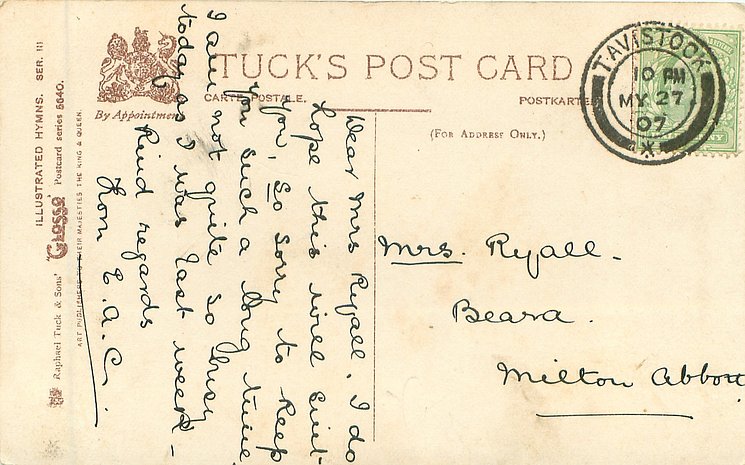 TUCK'S POST CARD
CARTE POSTALE.
POSTKARTE
(FOR ADDRESS ONLY.)
By Appointment
ILLUSTRATED HYMNS. SER. III
Raphael Tuck & Sons' "Glosso" Postcard series 5640.
ART PUBLISHERS TO THEIR MAJESTIES THE KING & QUEEN.
TAVISTOCK
10 PM
MY 27
07
Dear Mrs Ryall. I do
hope this will suit
you, so sorry to keep
you such a long time
I am not quite so busy
today as I was last week –
Kind regards
from E.A.C.
Mrs. Ryall –
Beara.
Milton Abbott